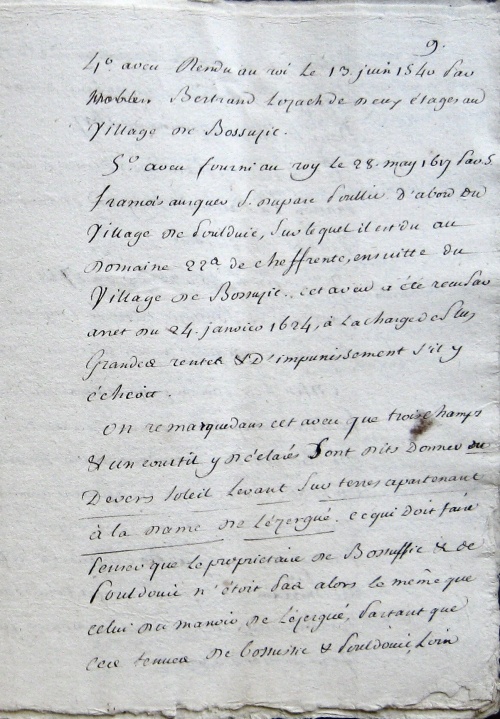 9.
4º aveu Rendu au roi Le 13. juin 1540 par
Bertrand Lozach de deux étages au
Village de Bossuzic.
5º. aveu fourni au roy le 28. may 1617 par S.
francois S. du parc Poullic d'abord du
Village de Poulduic, sur lequel il est du au
Domaine 22ª. de cheffrente, ensuitte du
Village de Bossuzic. cet aveu a été reçu par
aret du 24. janvier 1624, à La charge de plus
Grandes rentes & D'impunissement s'il y
échéoit.
On remarque dans cet aveu que trois champs
& un courtil y déclarés Sont dits donner du
Devers Soleil Levant Sur terres apartenant
à la dame de Lézergué. ce qui doit faire
penser que Le propriétaire de Bossuffic & de
Pouldouic n'étoit pas alors le même que
celui du manoir de Lézergué, partant que
ces tenues de Bossusic & Pouldouic, Loin